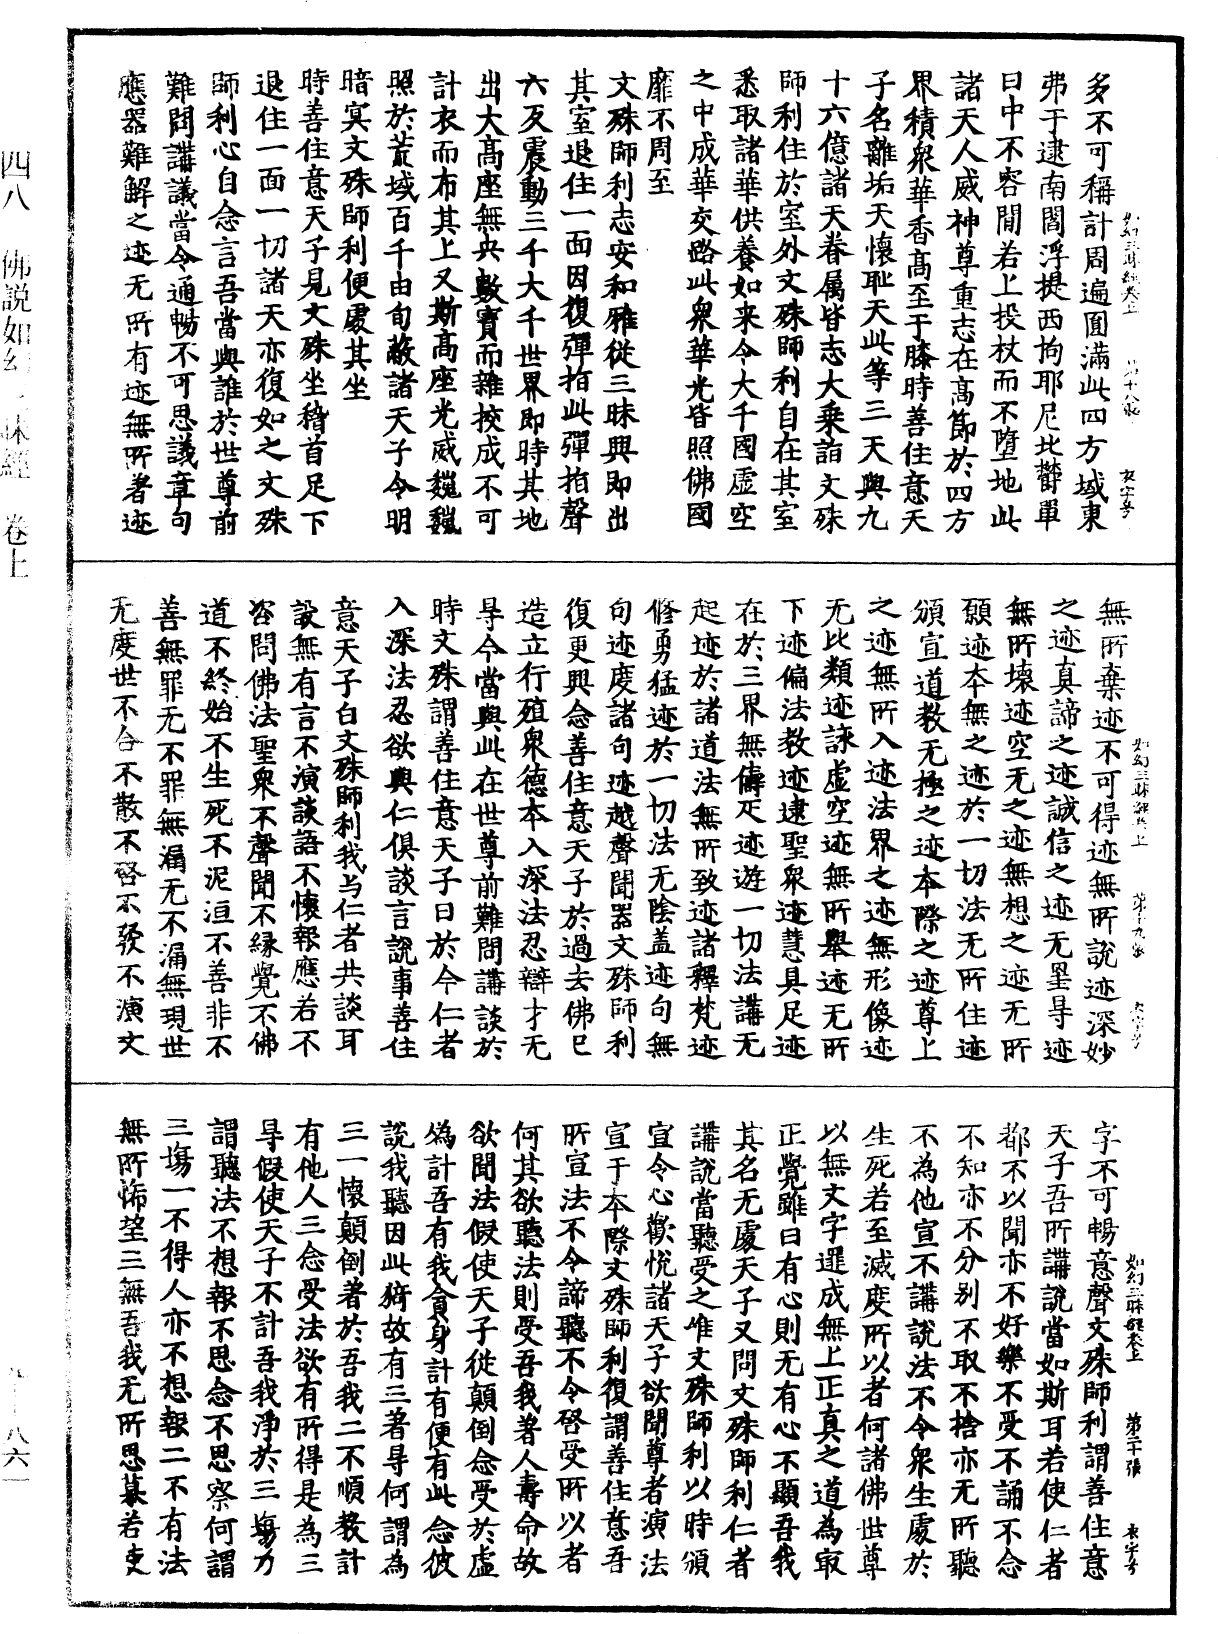 多不可稱計周遍圓滿此四方域東
弗于逮南閻浮提西拘耶尼北欝單
曰中不容間若上投杖而不墮地此
諸天人威神尊重志在高節於四方
界積衆華香高至于膝時善住意天
子名離垢天懷耻天此等三天與九
十六億諸天眷属皆志大乗詣文殊
師利住於室外文殊師利自在其室
悉取諸華供養如来令大千國虛空
之中成華交路此衆華光皆照佛國
靡不周至
文殊師利志安和雅從三昧興即出
其室退住一面因復彈指此彈指聲
六反震動三千大千世界即時其地
出大高座無央數寶而雜挍成不可
計衣而布其上又斯高座光威巍巍
照於荒域百千由旬蔽諸天子令明
暗冥文殊師利便處其坐
時善住意天子見文殊坐稽首足下
退住一面一切諸天亦復如之文殊
師利心自念言吾當與誰於世尊前
難問講議當令通暢不可思議章句
應器難解之迹无所有迹無所著迹
如幻三昧經卷上 第十八張 衣字号
無所棄迹不可得迹無所說迹深妙
之迹真諦之迹誠信之迹无罣㝵迹
無所壞迹空无之迹無想之迹无所
願迹本無之迹於一切法无所住迹
頒宣道教无極之迹本際之迹尊上
之迹無所入迹法界之迹無形像迹
无比類迹諫虛空迹無所舉迹无所
下迹偏法教迹逮聖衆迹慧具足迹
在於三界無儔疋迹遊一切法講无
起迹於諸道法無所致迹諸釋梵迹
修勇猛迹於一切法无陰盖迹句無
句迹度諸句迹越聲聞器文殊師利
復更興念善住意天子於過去佛已
造立行殖衆德本入深法忍辯才无
㝵今當與此在世尊前難問講談於
時文殊謂善住意天子曰於今仁者
入深法忍欲與仁俱談言說事善住
意天子白文殊師利我与仁者共談耳
設無有言不演談語不懷報應若不
咨問佛法聖衆不聲聞不緣覺不佛
道不終始不生死不泥洹不善非不
善無罪无不罪無漏无不漏無現世
无度世不合不散不啓不發不演文
如幻三昧經卷上 第十九張 衣字号
字不可暢意聲文殊師利謂善住意
天子吾所講說當如斯耳若使仁者
都不以聞亦不好樂不受不誦不念
不知亦不分别不取不捨亦无所聽
不為他宣不講說法不令衆生處於
生死若至滅度所以者何諸佛世尊
以無文字逮成無上正真之道為寂
正覺雖曰有心則无有心不顯吾我
其名无處天子又問文殊師利仁者
講說當聽受之唯文殊師利以時頒
宣令心歡悅諸天子欲聞尊者演法
宣于本際文殊師利復謂善住意吾
所宣法不令諦聽不令啓受所以者
何其欲聽法則受吾我著人壽命故
欲聞法假使天子從顛倒念受於虛
偽計吾有我貪身計有便有此念彼
說我聽因此猗故有三著㝵何謂為
三一懷顛倒著於吾我二不順教計
有他人三念受法欲有所得是為三
㝵假使天子不計吾我淨於三塲乃
謂聽法不想報不思念不思察何謂
三塲一不得人亦不想報二不有法
無所悕望三無吾我无所思慕若使
如幻三昧經卷上 第二十張 衣字号
四八 佛説如幻三昧經 卷上